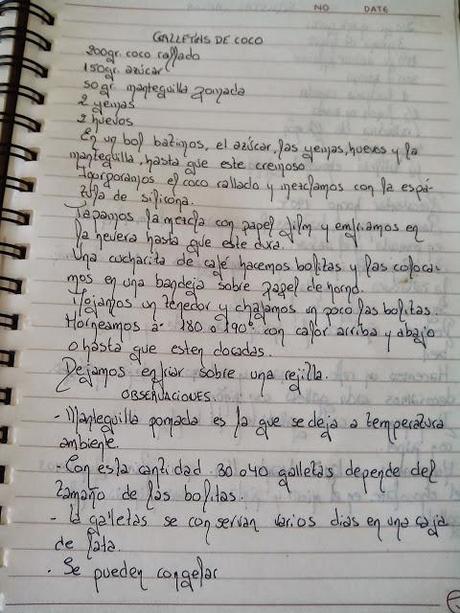 NO DATE
GALLETAS DE COCO
200gr. coco rallado
150gr. azúcar
50gr mantequilla pomada
2 yemas
2 huevos
En un bol batimos, el azúcar, las yemas, huevos y la
mantequilla, hasta que este cremoso
Incorporamos el coco rallado y mezclamos con la espá-
tula de silicona.
Tapamos la mezcla con papel film y enfriamos en
la nevera hasta que este dura.
Una cucharita de café hacemos bolitas y las coloca-
mos en una bandeja sobre papel de horno.
Mojamos un tenedor y chafamos un poco las bolitas.
Horneamos a 180 o 190º con calor arriba y abajo
o hasta que esten doradas.
Dejamos enfriar sobre una rejilla.
OBSERVACIONES
- Mantequilla pomada es la que se deja a temperatura
ambiente
- Con esta cantidad 30 o 40 galletas depende del
tamaño de las bolitas.
- La galletas se conservan varios dias en una caja
de lata.
. Se pueden congelar